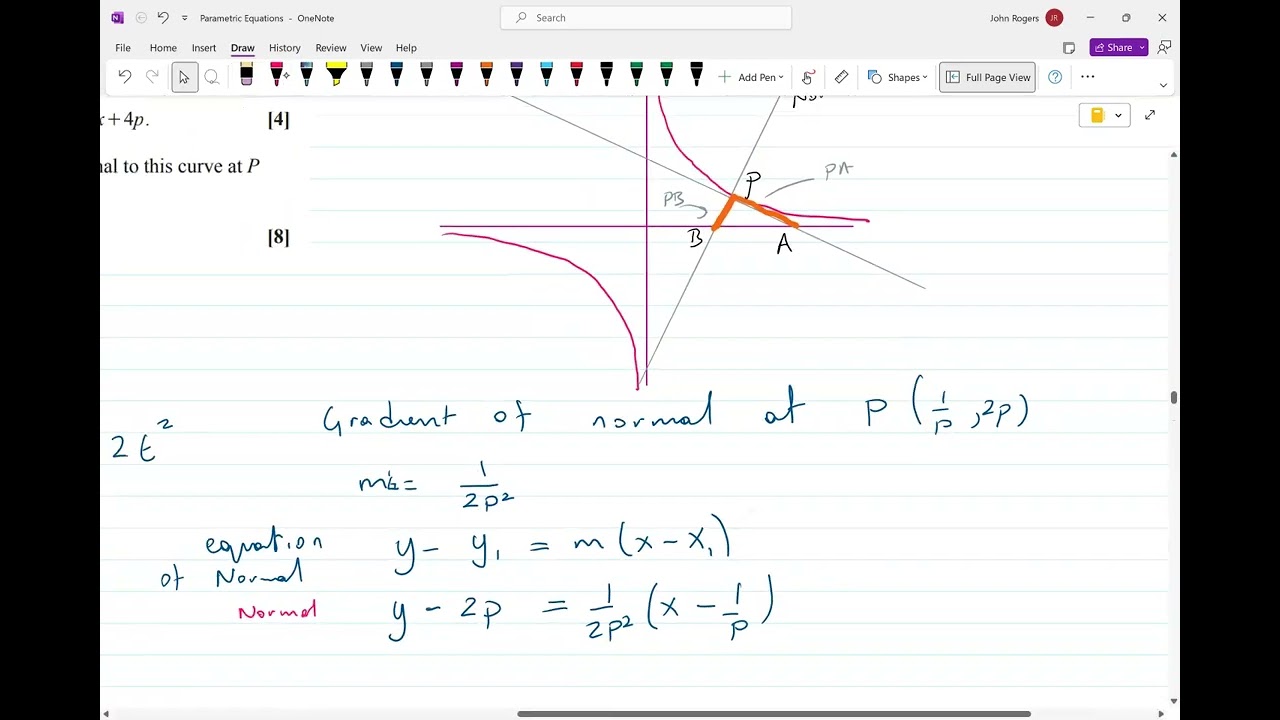 Parametric Equations - OneNote
Search
John Rogers JR
File Home Insert Draw History Review View Help
Share
Add Pen
Shapes
Full Page View
x+4p. [4]
nal to this curve at P
[8]
PA
PB
P
B
A
2t²
Gradient of normal at P (1/p, 2p)
= 1/2p²
equation of Normal
y - y₁ = m(x - x₁)
Normal y - 2p = 1/2p² (x - 1/p)